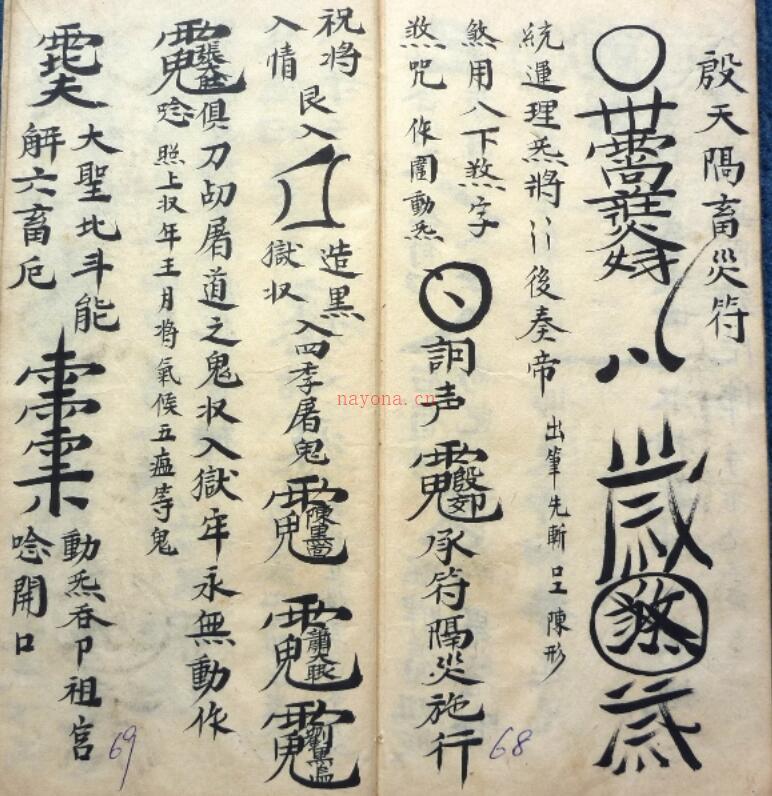 殷天隔畜災符
煞
統運理炁將〻後奏帝
出筆先斬口工陳形
煞用八下煞字
煞咒
作圍動炁
詞声
殷郊
承符隔災施行
68
祝將
入情
艮入
造黑
獄収
入四季屠鬼
陳
蕭
劉黑
張
唸
俱刀刼屠道之鬼収入獄牢永無動作
照上収年王月將氣候五瘟等鬼
大聖北斗能
解六畜厄
動炁吞卩祖宫
唸開口
69
nayona.cn